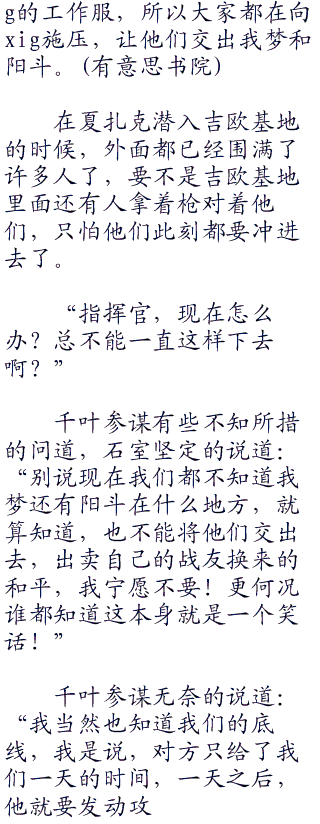 g的工作服，所以大家都在向
xig施压，让他们交出我梦和
阳斗。(有意思书院)
在夏扎克潜入吉欧基地
的时候，外面都已经围满了
许多人了，要不是吉欧基地
里面还有人拿着枪对着他
们，只怕他们此刻都要冲进
去了。
“指挥官，现在怎么
办？总不能一直这样下去
啊？”
千叶参谋有些不知所措
的问道，石室坚定的说道：
“别说现在我们都不知道我
梦还有阳斗在什么地方，就
算知道，也不能将他们交出
去，出卖自己的战友换来的
和平，我宁愿不要！更何况
谁都知道这本身就是一个笑
话！”
千叶参谋无奈的说道：
“我当然也知道我们的底
线，我是说，对方只给了我
们一天的时间，一天之后，
他就要发动攻